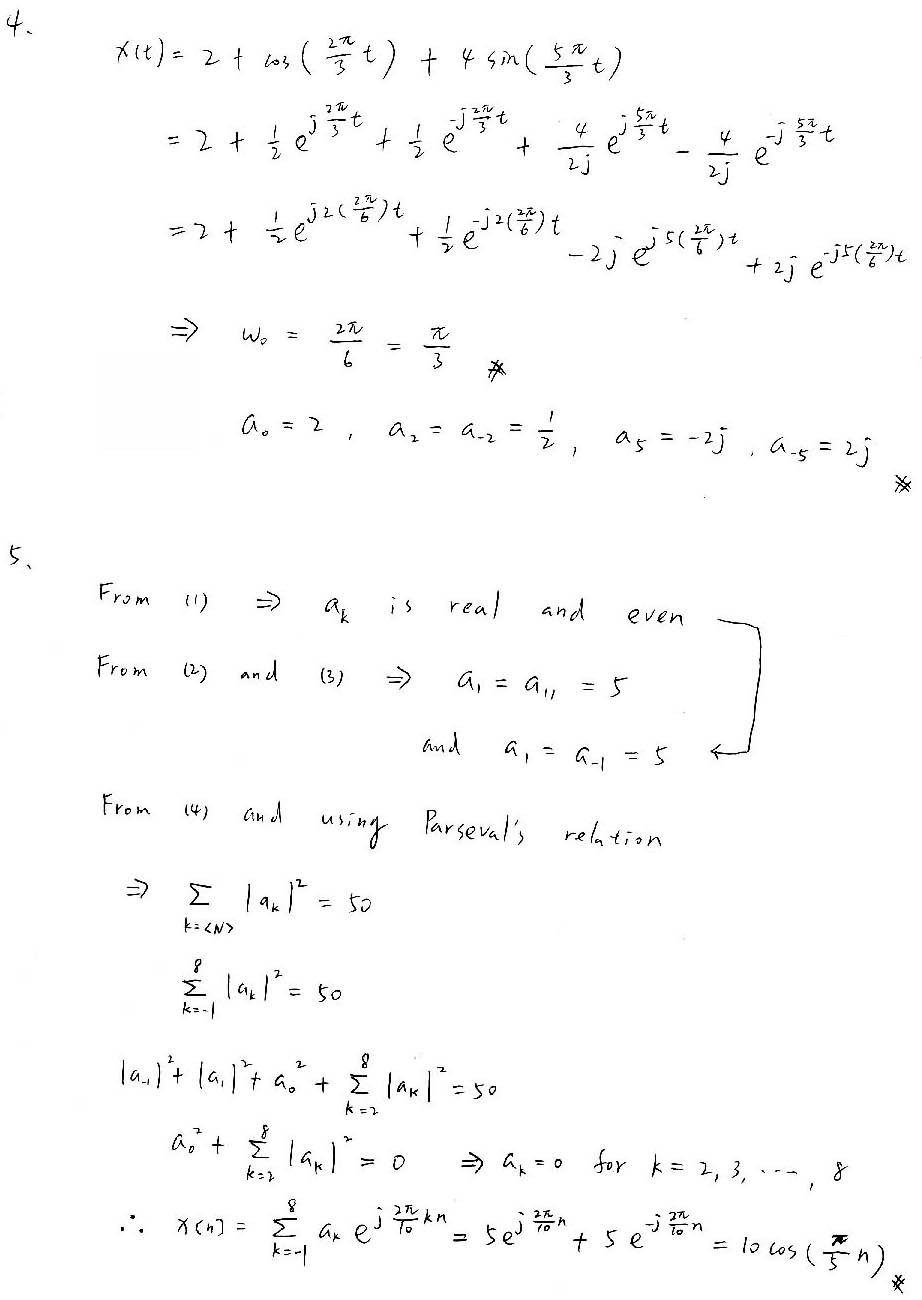 4.
x(t) = 2 + cos(2π/3 t) + 4 sin(5π/3 t)
= 2 + 1/2 e^{j 2π/3 t} + 1/2 e^{-j 2π/3 t} + 4/2j e^{j 5π/3 t} - 4/2j e^{-j 5π/3 t}
= 2 + 1/2 e^{j2(2π/6)t} + 1/2 e^{-j2(2π/6)t} - 2j e^{j5(2π/6)t} + 2j e^{-j5(2π/6)t}
⇒ w₀ = 2π/6 = π/3 ※
a₀ = 2 , a₂ = a₋₂ = 1/2 , a₅ = -2j , a₋₅ = 2j ※
5.
From (1) ⇒ a_k is real and even
From (2) and (3) ⇒ a₁ = a₁₁ = 5
and a₁ = a₋₁ = 5
From (4) and using Parseval's relation
⇒ Σ_{k=<N>} |a_k|² = 50
Σ_{k=-1}^{8} |a_k|² = 50
|a₋₁|² + |a₁|² + a₀² + Σ_{k=2}^{8} |a_k|² = 50
a₀² + Σ_{k=2}^{8} |a_k|² = 0 ⇒ a_k = 0 for k = 2, 3, ..., 8
∴ x[n] = Σ_{k=-1}^{8} a_k e^{j 2π/10 kn} = 5e^{j 2π/10 n} + 5e^{-j 2π/10 n} = 10 cos(π/5 n) ※